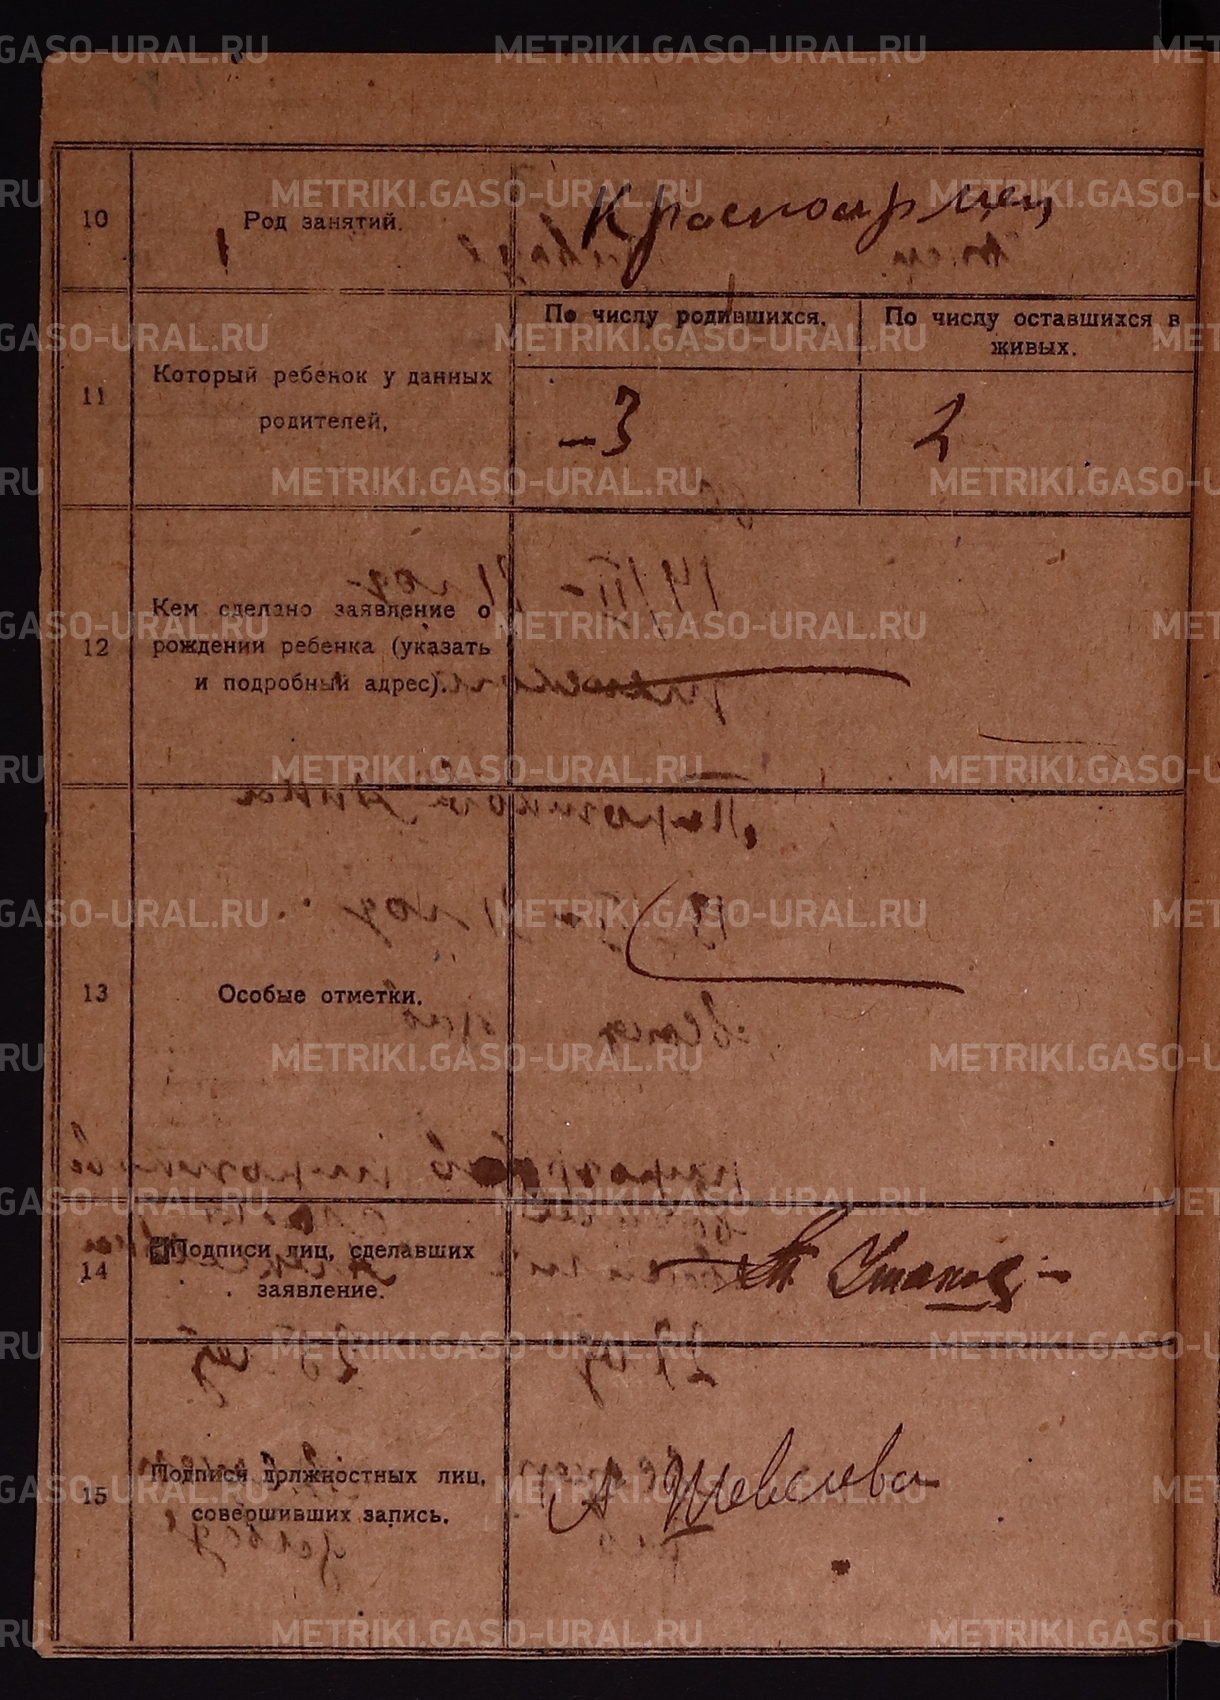 10
Род занятий.
Красноармеец
11
Который ребенок у данных
родителей.
По числу родившихся.
По числу оставшихся в
живых.
– 3
2
12
Кем сделано заявление о
рождении ребенка (указать
и подробный адрес).
13
Особые отметки.
14
Подписи лиц, сделавших
заявление.
Ушаков
15
Подписи должностных лиц,
совершивших запись.
А Шевелева
METRIKI.GASO-URAL.RU